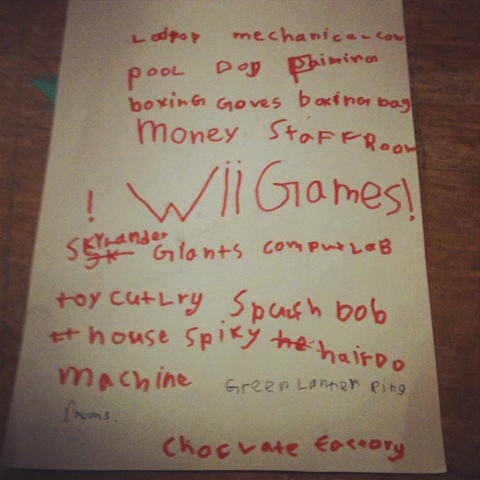 Lodpop mechanical cow
POOL Dog Paiming
boxing Goves boxing bag
Money StaFF Room
! Wii Games!
SKYLander Giants computLaB
toy cutLry Spuch bob
house Spiky hairDo
Machine Green Lantern Ring
Choclate factory